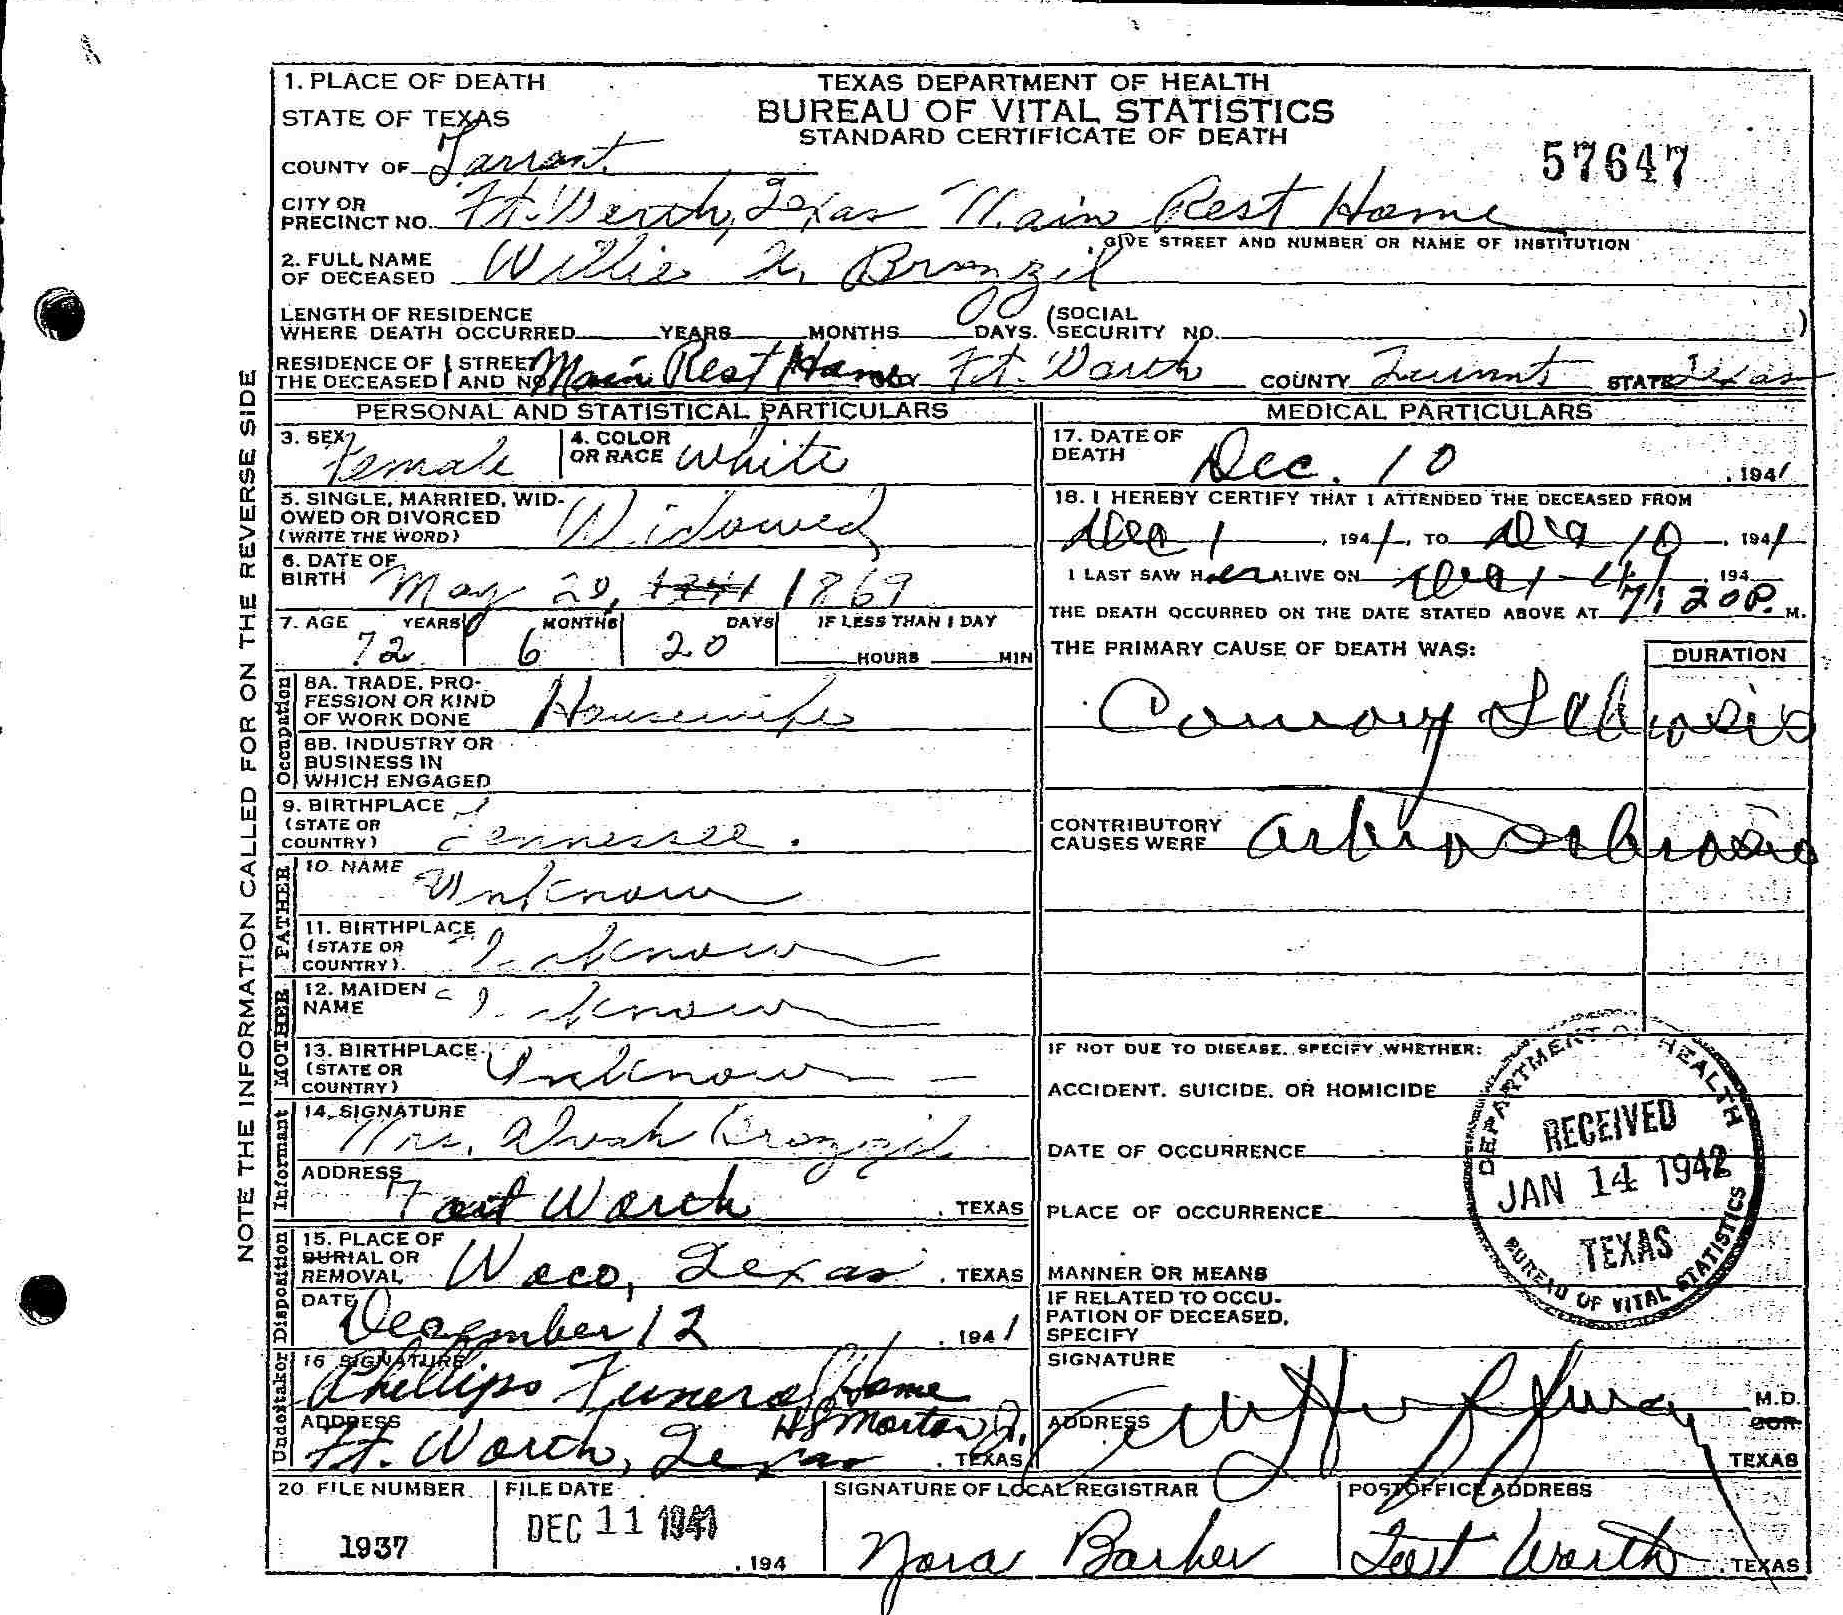 1. PLACE OF DEATH
STATE OF TEXAS
COUNTY OF Tarrant
TEXAS DEPARTMENT OF HEALTH
BUREAU OF VITAL STATISTICS
STANDARD CERTIFICATE OF DEATH
57647
CITY OR PRECINCT NO. Ft. Worth, Texas Main Rest Home
GIVE STREET AND NUMBER OR NAME OF INSTITUTION
2. FULL NAME OF DECEASED Willie Brazzil
LENGTH OF RESIDENCE WHERE DEATH OCCURRED YEARS MONTHS DAYS. (SOCIAL SECURITY NO. )
RESIDENCE OF THE DECEASED STREET AND NO. Main Rest Home Ft. Worth COUNTY Tarrant STATE Texas
NOTE THE INFORMATION CALLED FOR ON THE REVERSE SIDE
PERSONAL AND STATISTICAL PARTICULARS
3. SEX Female
4. COLOR OR RACE White
5. SINGLE, MARRIED, WIDOWED OR DIVORCED (WRITE THE WORD) Widowed
6. DATE OF BIRTH May 20, 1941 1869
7. AGE YEARS MONTHS DAYS IF LESS THAN 1 DAY
72 6 20 HOURS MIN
Occupation
8A. TRADE, PROFESSION OR KIND OF WORK DONE Housewife
8B. INDUSTRY OR BUSINESS IN WHICH ENGAGED
9. BIRTHPLACE (STATE OR COUNTRY) Tennessee.
FATHER
10. NAME Unknown
11. BIRTHPLACE (STATE OR COUNTRY). Unknown
MOTHER
12. MAIDEN NAME Unknown
13. BIRTHPLACE (STATE OR COUNTRY) Unknown
Informant
14. SIGNATURE Mrs. Alvah Brazzil
ADDRESS Fort Worth . TEXAS
Disposition
15. PLACE OF BURIAL OR REMOVAL Waco, Texas . TEXAS
DATE December 12 , 1941
Undertaker
16 SIGNATURE Phillips Funeral Home
H S Morton Jr.
ADDRESS Ft. Worth, Texas . TEXAS
MEDICAL PARTICULARS
17. DATE OF DEATH Dec. 10 , 1941
18. I HEREBY CERTIFY THAT I ATTENDED THE DECEASED FROM
Dec 1 , 1941, TO Dec 10 , 1941
I LAST SAW Her ALIVE ON , 194
THE DEATH OCCURRED ON THE DATE STATED ABOVE AT 7:20 P. M.
THE PRIMARY CAUSE OF DEATH WAS: DURATION
CONTRIBUTORY CAUSES WERE
IF NOT DUE TO DISEASE, SPECIFY WHETHER:
ACCIDENT, SUICIDE, OR HOMICIDE
DATE OF OCCURRENCE
PLACE OF OCCURRENCE
MANNER OR MEANS
IF RELATED TO OCCUPATION OF DECEASED, SPECIFY
DEPARTMENT OF HEALTH
RECEIVED
JAN 14 1942
TEXAS
BUREAU OF VITAL STATISTICS
SIGNATURE M.D.
ADDRESS COR.
TEXAS
20 FILE NUMBER 1937
FILE DATE DEC 11 1941 , 194
SIGNATURE OF LOCAL REGISTRAR Nora Barker
POSTOFFICE ADDRESS Fort Worth . TEXAS